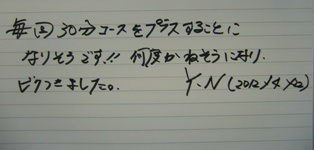 毎回30分コースをプラスすることに
なりそうです!! 何度かねそうになり
ビクつきました。 Y.N (2012/4/22)